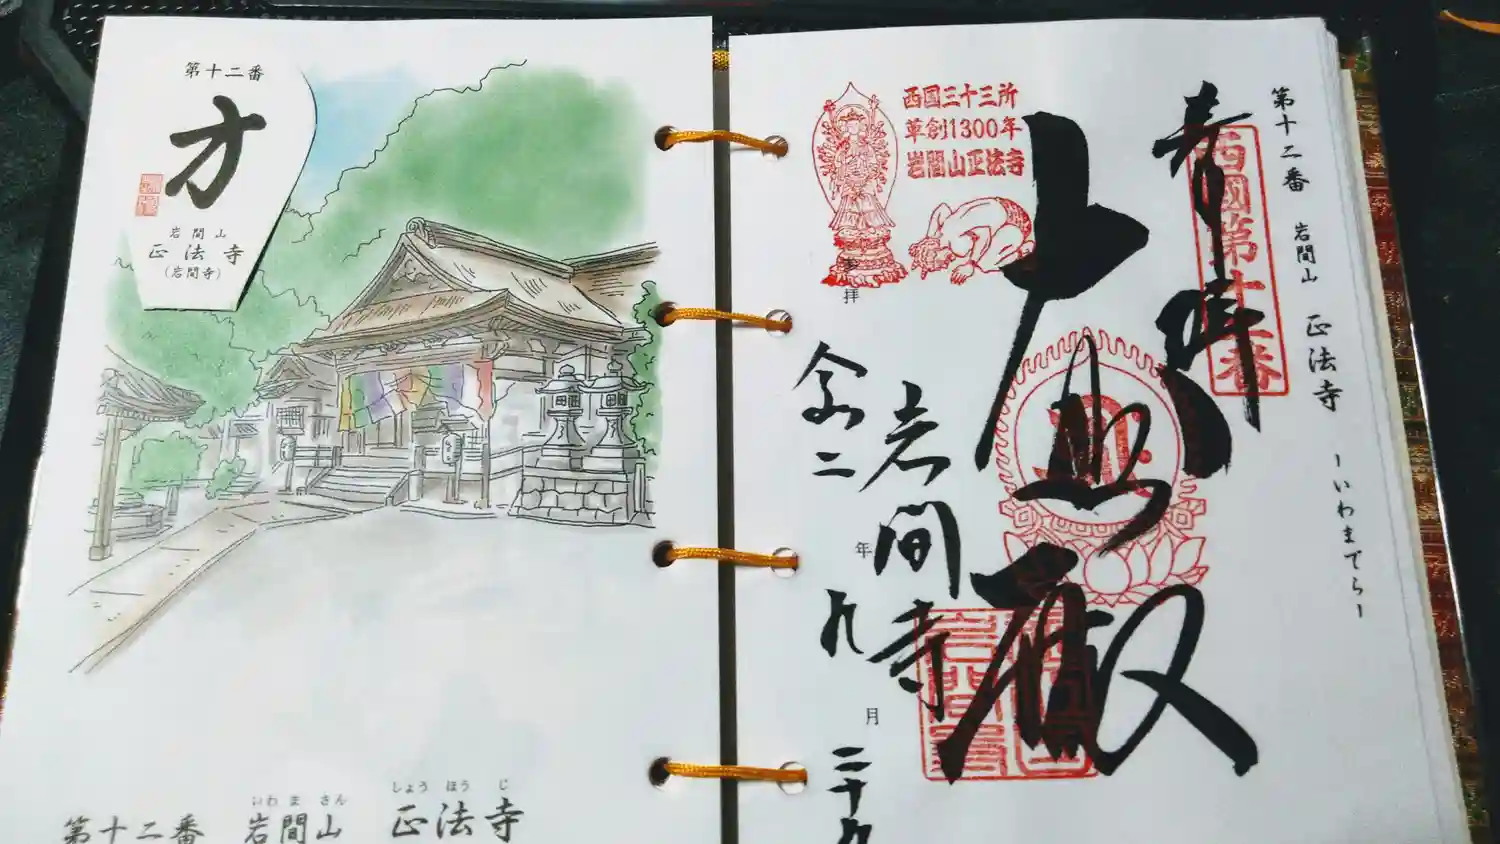 第十二番
方
岩間山
正法寺
(岩間寺)
いわ ま さん
しょう ほう じ
第十二番 岩間山 正法寺
第十二番 岩間山 正法寺 -いわまでら-
西国三十三所
草創1300年
岩間山正法寺
西國第十二番
奉拝
大悲殿
岩間寺
拝
令和二
年
九
月
二十九